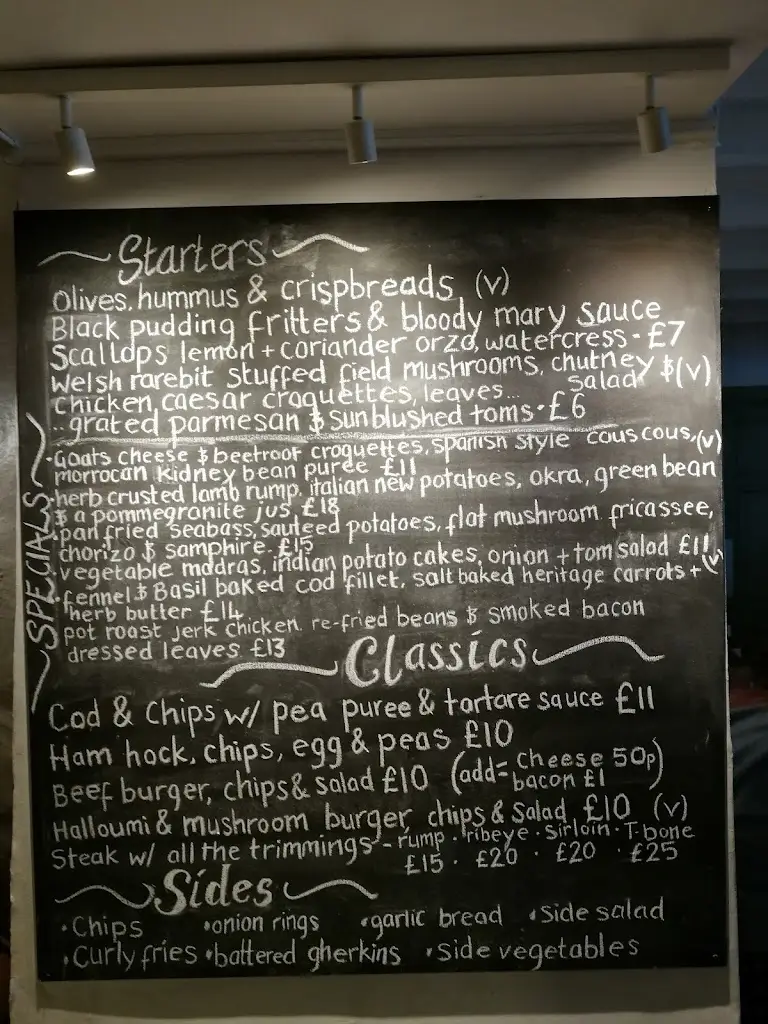 Starters
Olives, hummus & crispbreads (v)
Black pudding fritters & bloody mary sauce
Scallops lemon + coriander orzo, watercress - £7
Welsh rarebit stuffed field mushrooms, chutney $ (v)
salad
Chicken, caesar croquettes, leaves...
..grated parmesan $ sunblushed toms · £6
SPECIALS
· Goats cheese $ beetroot croquettes, spanish style cous cous, (v)
morrocan kidney bean puree £11
· herb crusted lamb rump, italian new potatoes, okra, green bean
$ a pommegranite jus, £18
· pan fried seabass, sauteed potatoes, flat mushroom fricassee,
chorizo $ samphire - £15
· vegetable madras, indian potato cakes, onion + tom salad £11 (v)
· fennel $ Basil baked cod fillet, salt baked heritage carrots +
herb butter £14
pot roast jerk chicken, re-fried beans $ smoked bacon
dressed leaves £13
Classics
Cod & Chips w/ pea puree & tartare sauce £11
Ham hock, chips, egg & peas £10
Beef burger, chips & salad £10 (add = Cheese 50p
bacon £1)
Halloumi & mushroom burger, chips & Salad £10 (v)
Steak w/ all the trimmings - rump · ribeye · sirloin · T-bone
£15 · £20 · £20 · £25
Sides
· Chips · onion rings · garlic bread · Side salad
· Curly fries · battered gherkins · Side vegetables